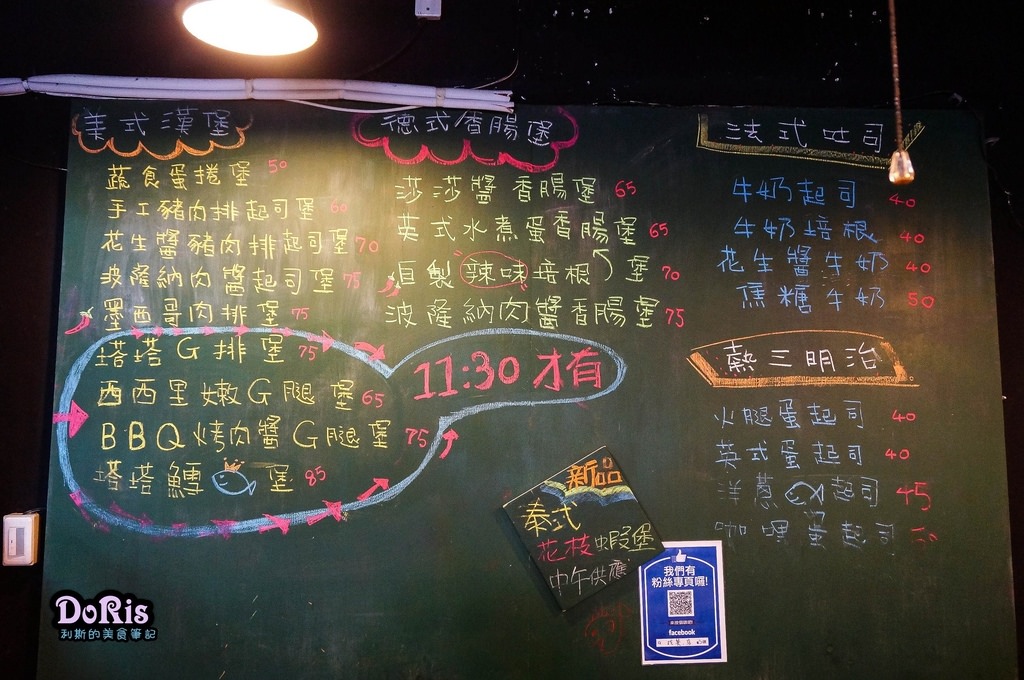 美式漢堡
蔬食蛋捲堡 50
手工豬肉排起司堡 60
花生醬豬肉排起司堡 70
波隆納肉醬起司堡 75
墨西哥肉排堡 75
塔塔G排堡 75
西西里嫩G腿堡 65
BBQ烤肉醬G腿堡 75
塔塔鱈堡 85
11:30才有
德式香腸堡
莎莎醬香腸堡 65
英式水煮蛋香腸堡 65
自製辣味培根堡 70
波隆納肉醬香腸堡 75
法式吐司
牛奶起司 40
牛奶培根 40
花生醬牛奶 40
焦糖牛奶 50
熱三明治
火腿蛋起司 40
英式蛋起司 40
洋蔥起司 45
咖哩蛋起司
新品
泰式
花枝蝦堡
中午供應
我們有
粉絲專頁囉!
facebook
DoRis
利斯的美食筆記